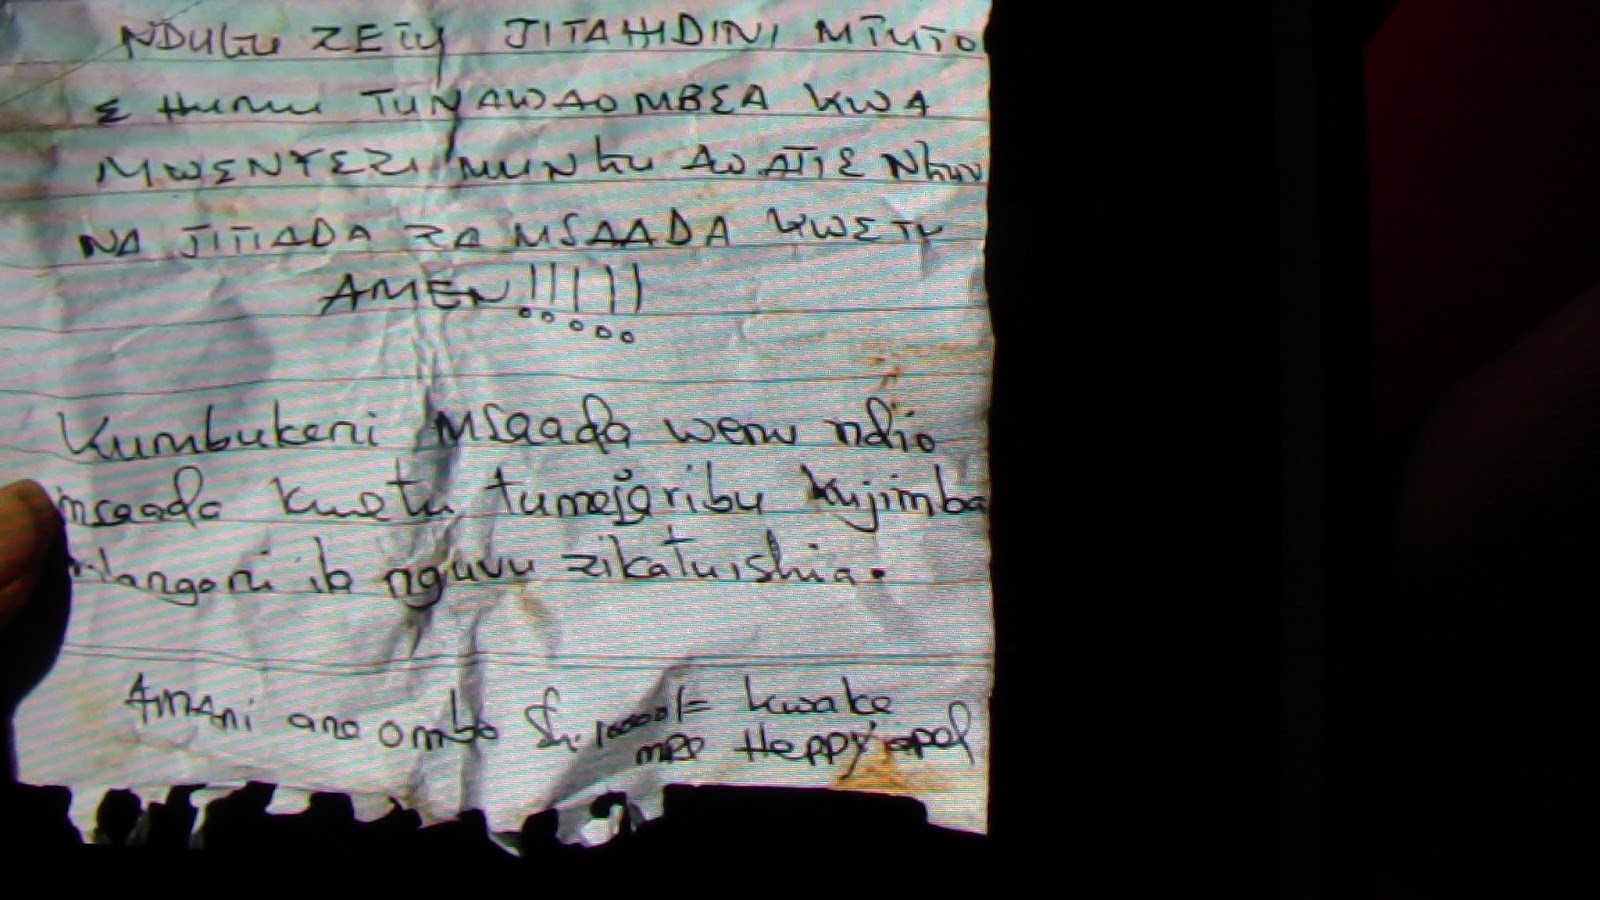 NDUGU ZETU JITAHIDINI MTUTO
E HUMU TUNAWAOMBEA KWA
MWENYEZI MUNGU AWATIE NGUV
NA JITIADA ZA MSAADA KWETU
AMEN!!!!!
Kumbukeni msaada wenu ndio
msaada kwetu tumejaribu kujimba
milangoni ila nguvu zikatuishia.
Amani ana omba Sh. 10000/= kwake
Heppy apol